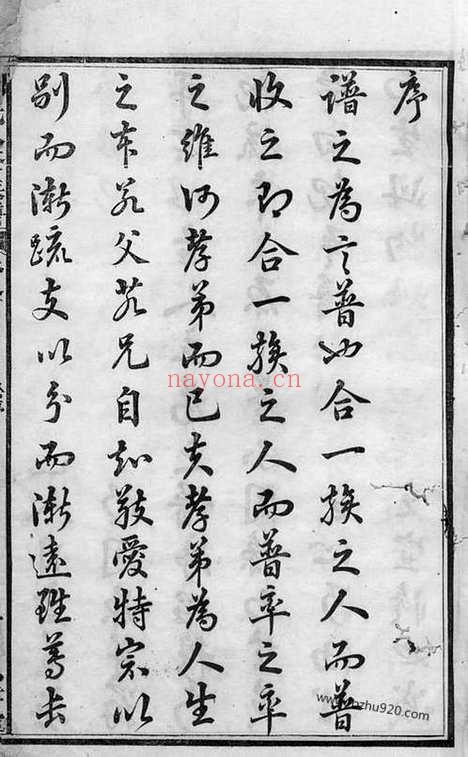 序
譜之為言普也合一族之人而普
收之即合一族之人而普率之率
之維何孝弟而已夫孝弟為人生
之本各父若兄自知敬愛特宗以
別而漸疏支以分而漸遠雖尊長
nayona.cn